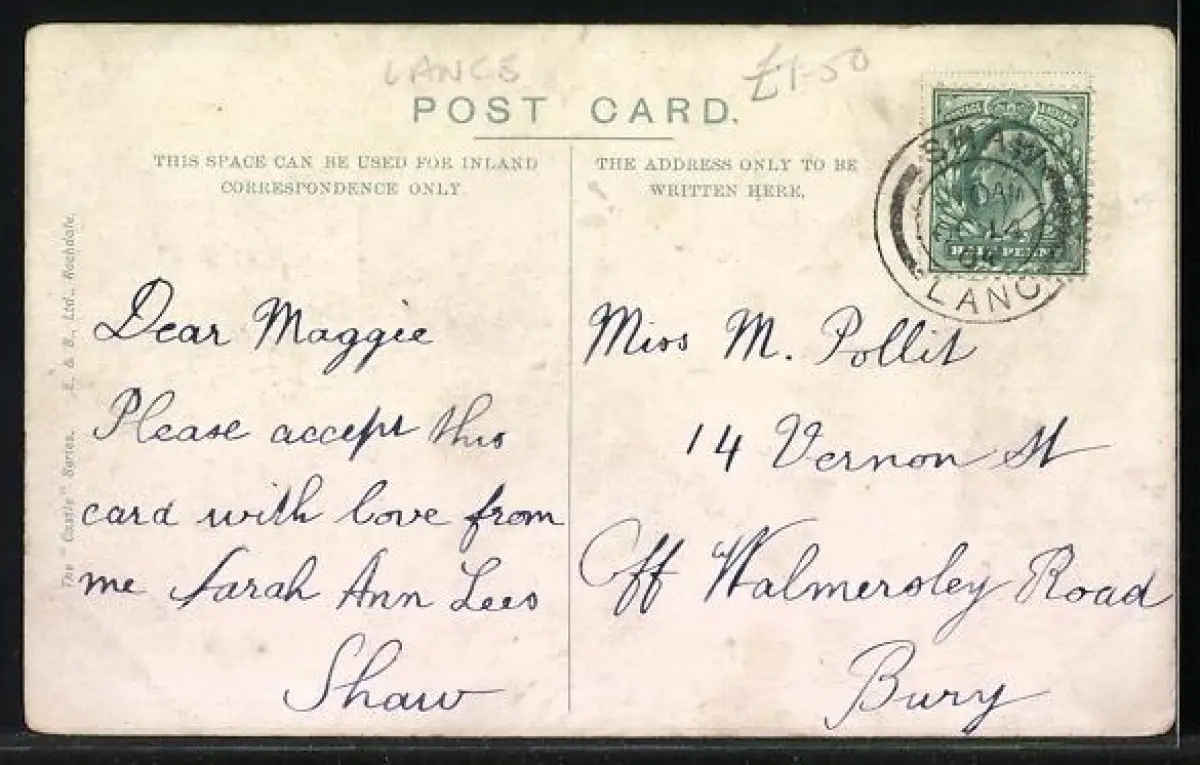 LANCS
£1-50
POST CARD.
THIS SPACE CAN BE USED FOR INLAND
CORRESPONDENCE ONLY.
THE ADDRESS ONLY TO BE
WRITTEN HERE.
HALF PENNY
SHAW
LANC
The "Castle" Series. E. & B., Ltd., Rochdale.
Dear Maggie
Please accept this
card with love from
me Sarah Ann Lees
Shaw
Miss M. Pollit
14 Vernon St
Off Walmersley Road
Bury